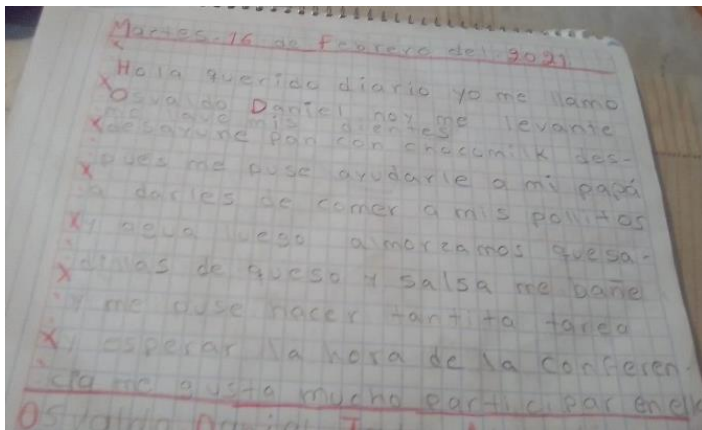 Martes 16 de febrero del 2021
Hola querido diario yo me llamo
Osvaldo Daniel hoy me levante
me lave mis dientes
desayune pan con chocomilk des-
pues me puse ayudarle a mi papá
a darles de comer a mis pollitos
y agua luego almorzamos quesa-
dillas de queso y salsa me bañe
y me puse hacer tantita tarea
y esperar la hora de la conferen-
cia me gusta mucho participar en el
Osvaldo Daniel